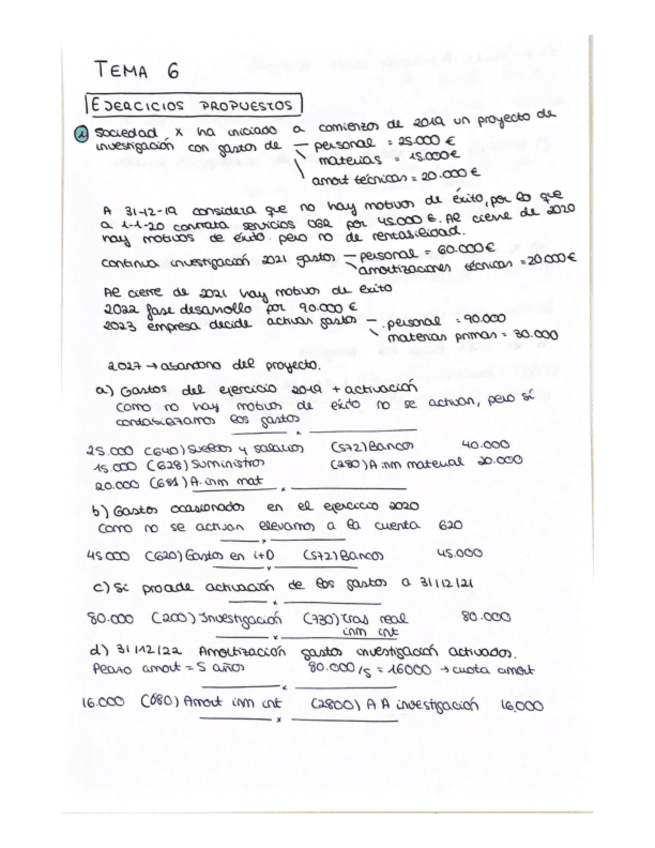 TEMA 6
EJERCICIOS PROPUESTOS
1 Sociedad X ha iniciado a comienzos de 2019 un proyecto de
investigación con gastos de — personal = 25.000 €
materias = 15.000 €
amort técnicas = 20.000 €
A 31-12-19 considera que no hay motivos de éxito, por lo que
a 1-1-20 contrata servicios por 45.000 €. Al cierre de 2020
hay motivos de éxito pero no de rentabilidad.
continua investigación 2021 gastos — personal = 60.000 €
amortizaciones técnicas = 20000 €
Al cierre de 2021 hay motivos de éxito
2022 fase desarrollo por 90.000 €
2023 empresa decide activar gastos — personal = 90.000
materias primas = 30.000
2027 → abandono del proyecto.
a) Gastos del ejercicio 2019 + activación
como no hay motivos de éxito no se activan, pero sí
contabilizamos los gastos
25.000 (640) Sueldos y salarios (572) Bancos 40.000
15.000 (628) Suministros (280) A inm material 20.000
20.000 (681) A. inm mat
b) Gastos ocasionados en el ejercicio 2020
Como no se activan llevamos a la cuenta 620
45000 (620) Gastos en i+D (572) Bancos 45.000
c) Si procede activación de los gastos a 31/12/21
80.000 (200) Investigación (730) tras real 80.000
inm int
d) 31/12/22 Amortización gastos investigación activados.
Plazo amort = 5 años 80.000/5 = 16000 → cuota amort
16.000 (680) Amort inm int (2800) A A investigación 16,000